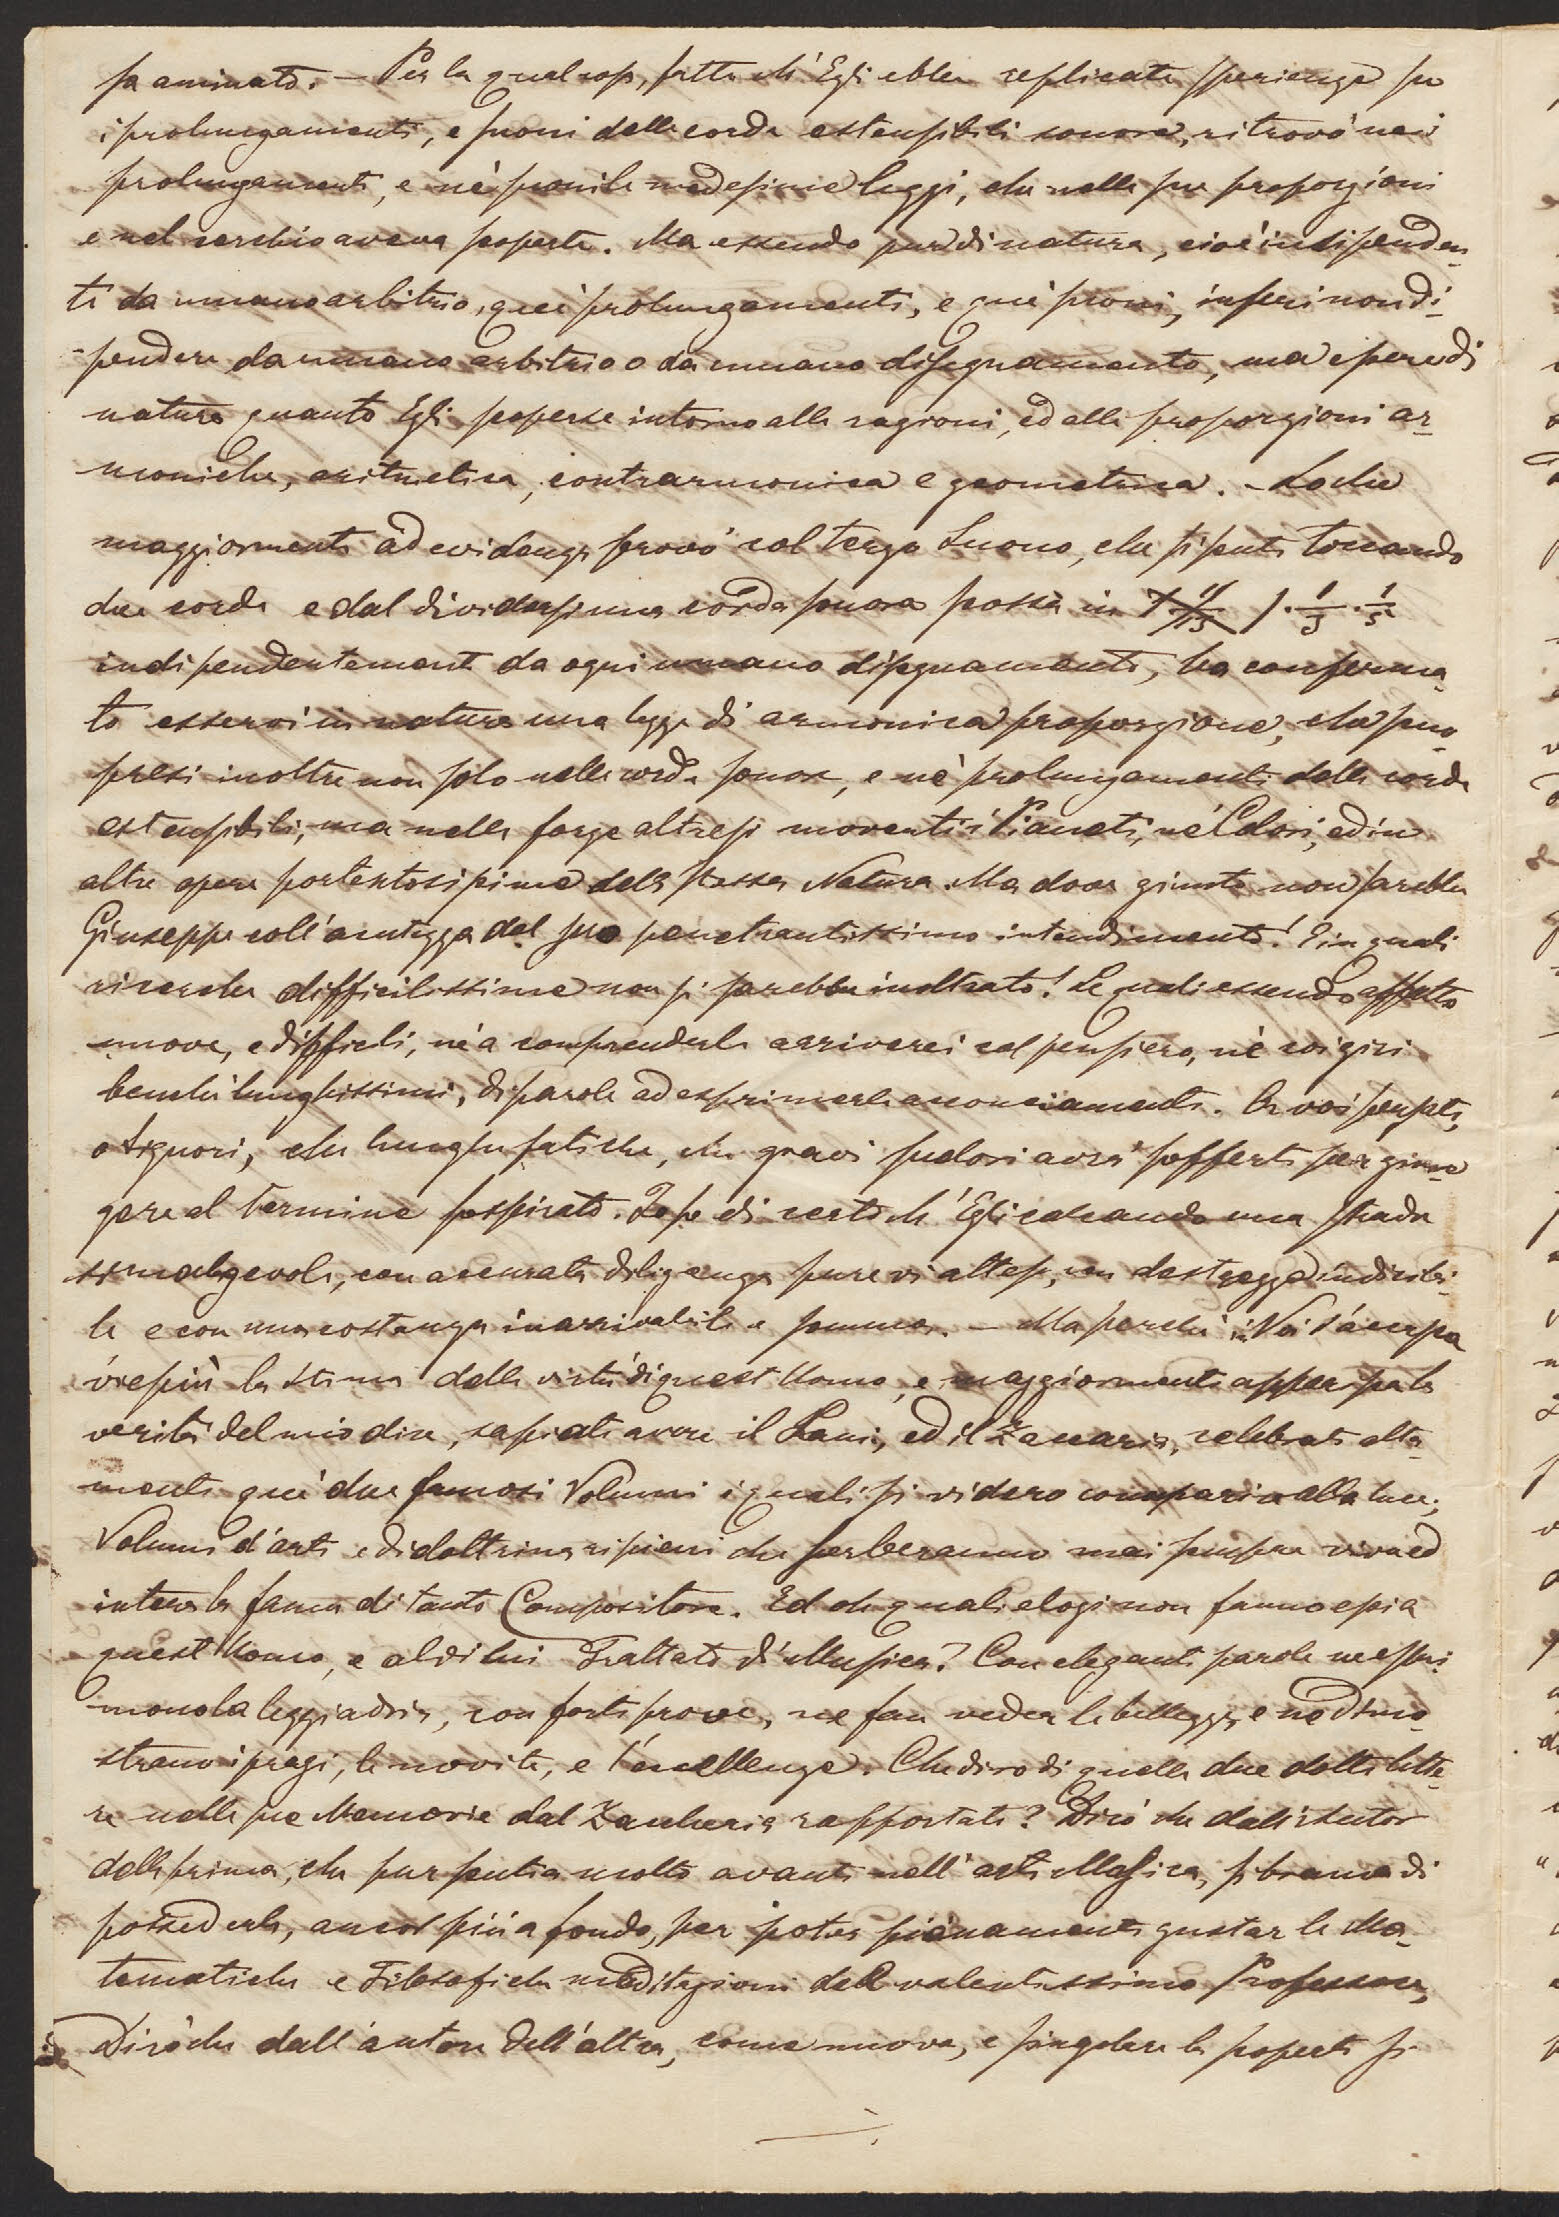 saminato. — Per la qual cosa, fatte ch' Egli ebbe replicate sperienze su
i prolungamenti, e suoni delle corde estensibili sonore, ritrovò nei
prolungamenti, e nè suoni le medesime leggi, che nelle sue proporzioni
e nel cerchio aveva scoperte. Ma essendo pur di natura, cioè indipenden-
ti da umano arbitrio, quei prolungamenti, e quei suoni, inferì non di-
-pendere da umano arbitrio o da umano disegnamento, ma essere di
natura quanto Egli scoperse intorno alle ragioni, ed alle proporzioni ar-
moniche, aritmetica, contrarmonica e geometrica. - Loche
maggiormente ad evidenza provò col terzo Suono, che si sente toccando
due corde e dal dividersi una corda sonora possa in 1. 1/3. 1/5
indipendentemente da ogni umano disegnamento, ha conferma-
to esservi in natura una legge di armonica proporzione, che sco-
presi inoltre non solo nelle corde sonore, e nè prolungamenti delle corde
estensibili, ma nelle forze altresì moventi i Pianeti, nè Colori, ed in
altre opere portentosissime della stessa Natura. Ma dove giunto non sarebbe
Giuseppe coll'acutezza del suo penetrantissimo intendimento! E in quali
ricerche difficilissime non si sarebbe inoltrato! Le quali essendo affatto
nuove, e difficili, nè a comprenderle arriverei col pensiero, nè coi giri
benchè lunghissimi, di parole ad esprimerle acconciamente. Or voi pensate,
o Signori, che lunghe fatiche, che gravi sudori avrà sofferti per giun-
gere al termine sospirato. Io so di certo ch' Egli calcando una strada
sì malagevole, con accurata diligenza pure vi attese, con destrezza indicibi-
le e con una costanza inarrivabile e somma. — Ma perchè in Voi s'accresca
viepiù la stima della virtù di quest Uomo, e maggiormente apparisca la
verità del mio dire, sapiate avere il Lami, ed il Zaccaria, celebrati alta-
mente quei due famosi Volumi i quali si videro comparir alla luce;
Volumi d'arte e di dottrina ripieni che serberanno mai sempre viva ed
intera la fama di tanto Compositore. Ed oh quali elogi non fanno essi a
quest Uomo, e al di lui Trattato di Musica? Con eleganti parole ne espri-
mono la leggiadria, con forti prove, ne fan veder le bellezze, e ne dimo-
strano i pregi, le novità, e l'eccellenze. Che dirò di quelle due dotte lette-
re nelle sue Memorie dal Zaccheria rapportate? Dirò che dall'Autor
della prima, che pur sentia molto avanti nell'arte Musica, si brama di
possederla, ancor più a fondo, per poter pienamente gustar le Ma-
tematiche e Filosofiche meditazioni del valentissimo Professore,
Dirò che dall'autore dell'altra, come nuova, e singolare la scoperta si